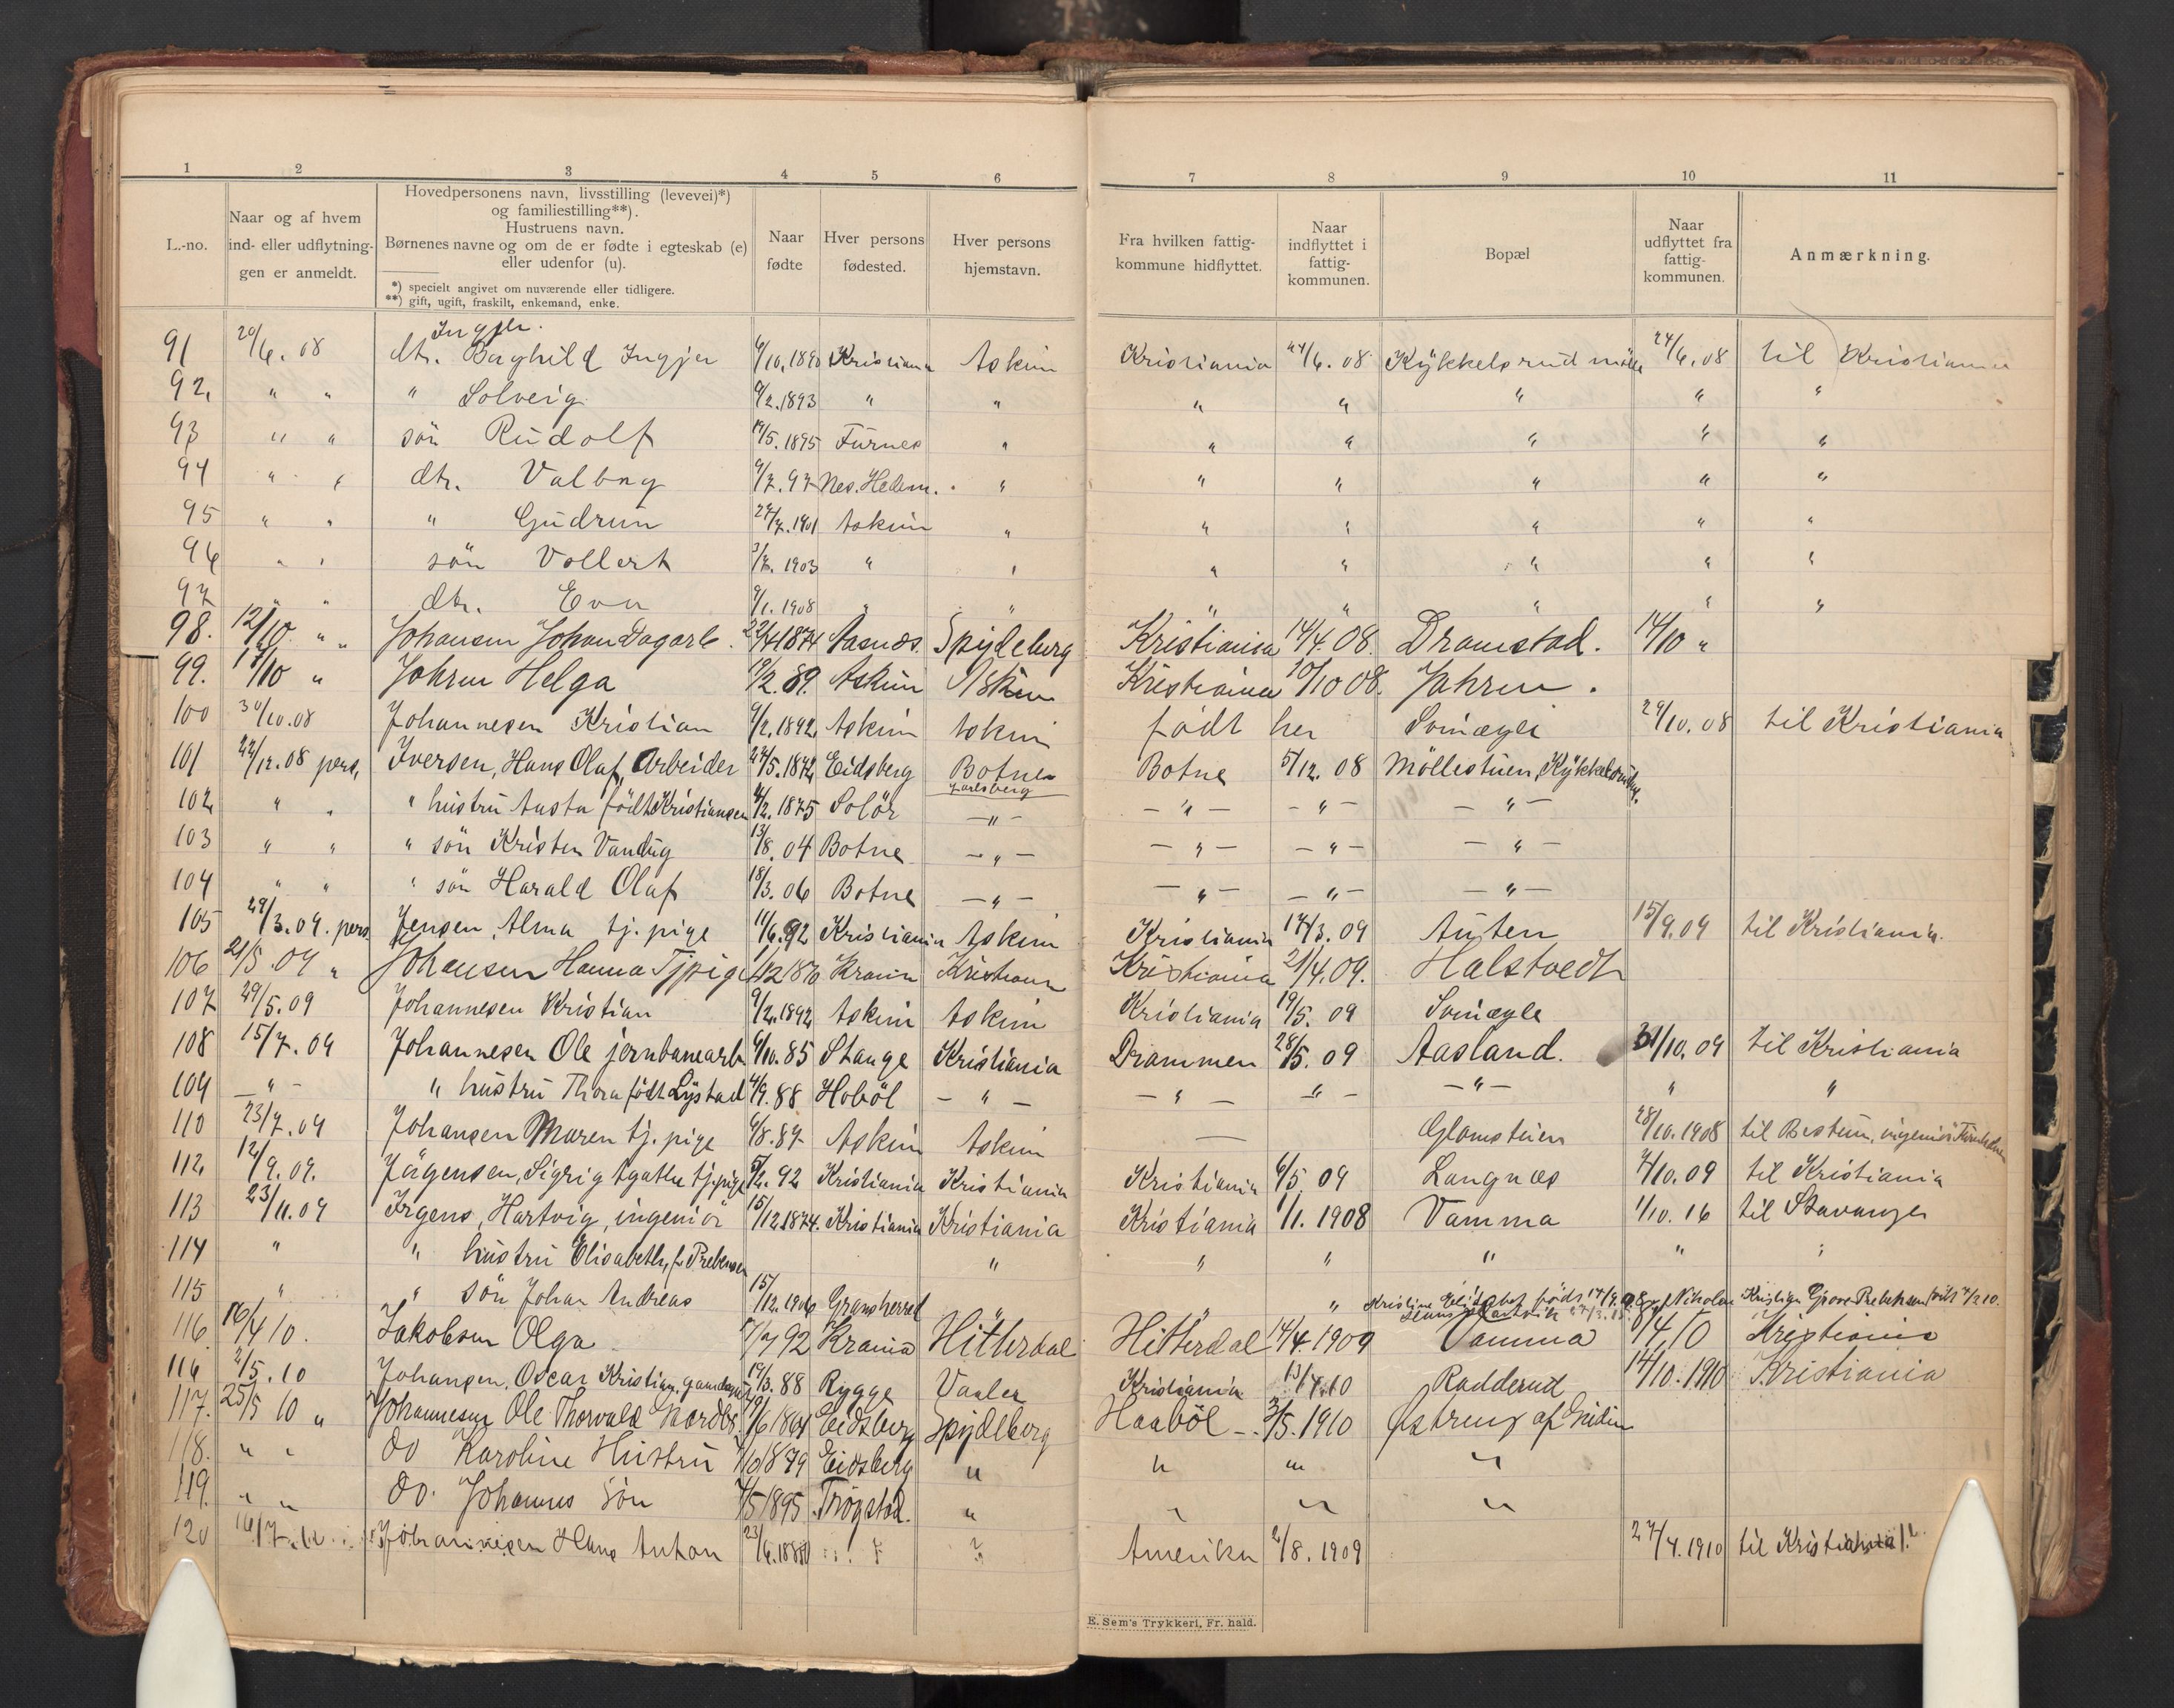 1 2 3 4 5 6 7 8 9 10 11
L.-no.
Naar og af hvem ind- eller udflytningen er anmeldt.
Hovedpersonens navn, livsstilling (levevei)*) og familiestilling**).
Hustruens navn.
Børnenes navne og om de er fødte i egteskab (e) eller udenfor (u).
*) specielt angivet om nuværende eller tidligere.
**) gift, ugift, fraskilt, enkemand, enke.
Naar fødte
Hver persons fødested.
Hver persons hjemstavn.
Fra hvilken fattigkommune hidflyttet.
Naar indflyttet i fattig-kommunen.
Bopæl
Naar udflyttet fra fattig-kommunen.
Anmærkning.
Ingjer.
91 20/6. 08 dtr. Borghild Ingjer 6/10.1890 Kristiania Askim Kristiania 24/6. 08 Kykkelsrud mölle 24/6.08 til Kristiania
92, " " " Solveig 9/2.1893 " " " " " " "
93 " " sön Rudolf 19/5.1895 Furnes " " " " " "
94 " " dtr. Valborg 9/7.97 Nes. Hedem. " " " " " "
95 " " " Gudrun 27/7.1901 Askim " " " " " "
96 " " sön Vollert 3/7. 1903 " " " " " " "
97 " " dtr. Eva 9/1.1908 " " " " " " "
98. 12/10 " " Johansen Johan Dagarb. 22/4 1874 Aasnæs. Spydeberg Kristiania 14/4.08. Dramstad. 14/10 "
99. 17/10 " Johren Helga 19/2.89. Askim Askim Kristiania 10/10 08. Jahren.
100 30/10.08 Johannesen Kristian 9/2.1892 Askim Askim født her Svinægle 29/10.08 til Kristiania
101 22/12.08 pers, Iversen, Hans Olaf, Arbeider 24/5.1872 Eidsberg Botne Jarlsberg Botne 5/12. 08 Möllestuen, Kykkelsrud.
102 " " " hustru Aasta født Kristiansen 4/2.1875 Solör — " — — " — — " — — " —
103 " " " sön Kristen Vandug 13/8.04 Botne — " — — " — — " — — " —
104 " " " sön Harald Olaf 18/3.06 Botne — " — — " — — " — — " —
105 29/3.09. pers Jensen, Alma tj. pige 11/6.92 Kristiania Askim Kristiania 17/3.09 Auten 15/9.09 til Kristiania.
106 21/5.09 " Johansen Hanna Tjpige 1/12 1870 Krania Kristiania Kristiania 21/4.09. Halstvedt
107 29/5.09 Johannesen Kristian 9/2.1892 Askim Askim Kristiania 19/5. 09 Svinægle
108 15/7.09 Johannesen Ole jernbanearb 9/10.85 Stange Kristiania Drammen 28/5.09 Aasland. 31/10.09 til Kristiania
109 — " — " hustru Thora født Lystad 4/9.88 Hoböl — " — — " — — " — — " — " "
110 23/7.09 Johansen Maren tj. pige 6/8.87 Askim Askim — Glamstuen 28/10.1908 til Bestum, ingeniør
112, 12/9.09. Jörgensen, Sigrig Agathe tj.pige 5/2.92 Kristiania Kristiania Kristiania 6/5.09 Langnæs 4/10.09 til Kristiania
113 23/11.09 Irgens, Hartvig, ingeniör 15/12.1874. Kristiania Kristiania Kristiania 1/1.1908 Vamma 1/10.16 til Stavanger
114 " " hustru Elisabeth, f. Prebensen " " " " " "
115 " " sön Johan Andreas 15/12.1906 Gransherred " " " Kristine Elisabet født 17/9.08 og Nikolai Kristian Grove Prebensen født 7/3.10.
116. 16/4 10. Jakobsen Olga 7/7 92 Krania Hitterdal Hitterdal 14/4.1909 Vamma 9/4.10 Kristiania
116 2/5.10 Johansen, Oscar Kristian, gaardsgut 19/3.88 Rygge Vaaler Kristiania 13/4.10 Radderud 14/10.1910 Kristiania
117. 25/5 10 " Johannesen Ole Thorvald Nordb. 9/6 1864 Eidsberg Spydeberg Haaböl 3/5.1910 Østreng af Gridin
118. " " do Karoline Hustru 1/10 1879 Eidsberg " " " "
119. " " do. Johannes Sön 4/5 1895 Trøgstad. " " " "
120 16/7.10 Johannesen Hans Anton 23/6.1888 " " Amerika 2/8.1909 27/4.1910 til Kristiania
E. Sem's Trykkeri, Fr. hald.